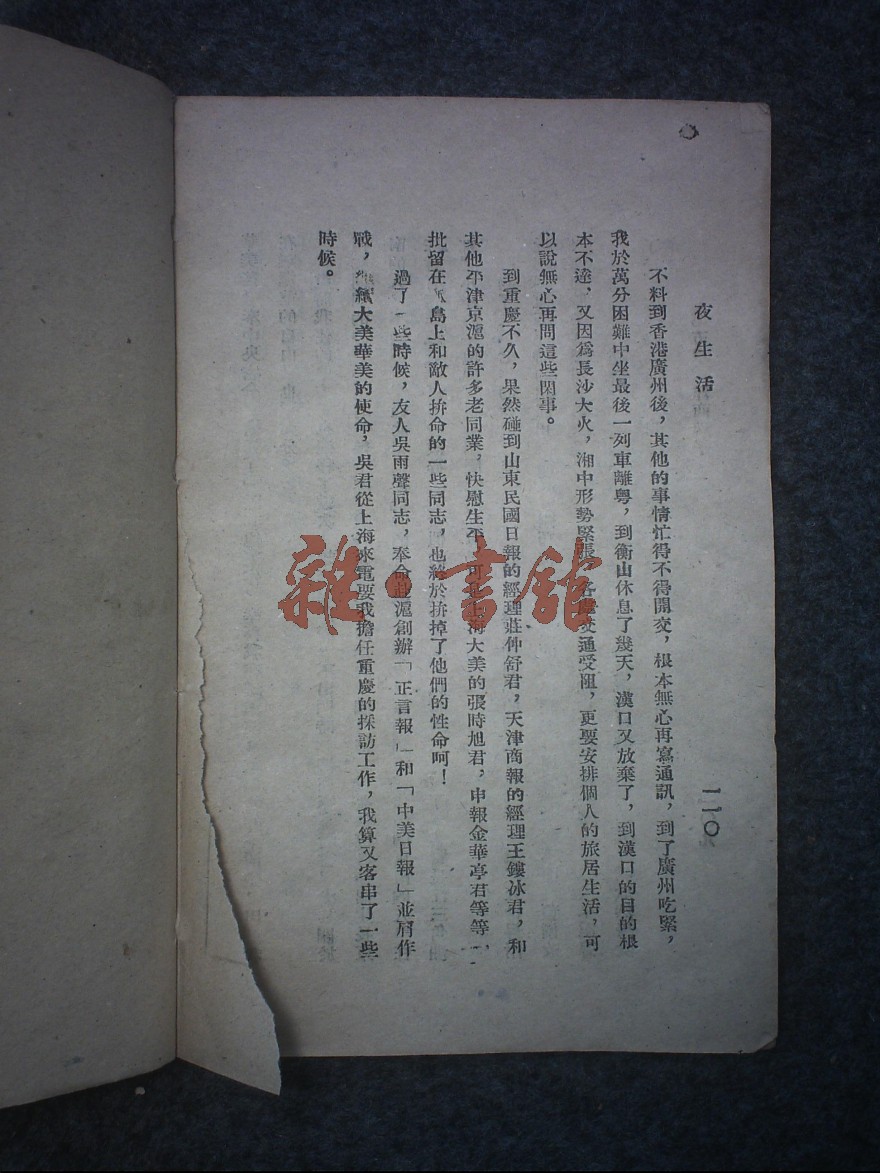 夜生活
一一〇
不料到香港廣州後，其他的事情忙得不得開交，根本無心再寫通訊，到了廣州吃緊，
我於萬分困難中坐最後一列車離粵，到衡山休息了幾天，漢口又放棄了，到漢口的目的根
本不達，又因爲長沙大火，湘中形勢緊張，各處交通受阻，更要安排個人的旅居生活，可
以說無心再問這些閑事。
到重慶不久，果然碰到山東民國日報的經理莊仲舒君，天津商報的經理王鏤冰君，和
其他平津京滬的許多老同業，快慰生平，可是上海大美的張時旭君，申報金華亭君等等，一
批留在孤島上和敵人拚命的一些同志，也終於拚掉了他們的性命呵！
過了一些時候，友人吳雨聲同志，奉命赴滬創辦「正言報」和「中美日報」並肩作
戰，繼續大美華美的使命，吳君從上海來電要我擔任重慶的採訪工作，我算又客串了一些
時候。
雜·書館